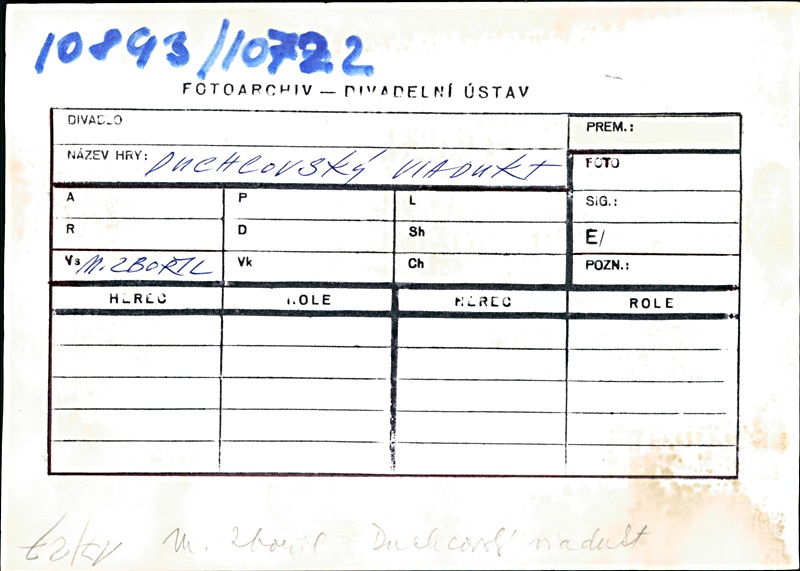 10893/10722
FOTOARCHIV — DIVADELNÍ ÚSTAV
DIVADLO
PREM.:
NÁZEV HRY: DUCHCOVSKÝ VIADUKT
FOTO
A P L SIG.:
R D Sh E/
Vs M. ZBOŘIL Vk Ch POZN.:
HEREC ROLE HEREC ROLE
M. Zbořil Duchcovský viadukt